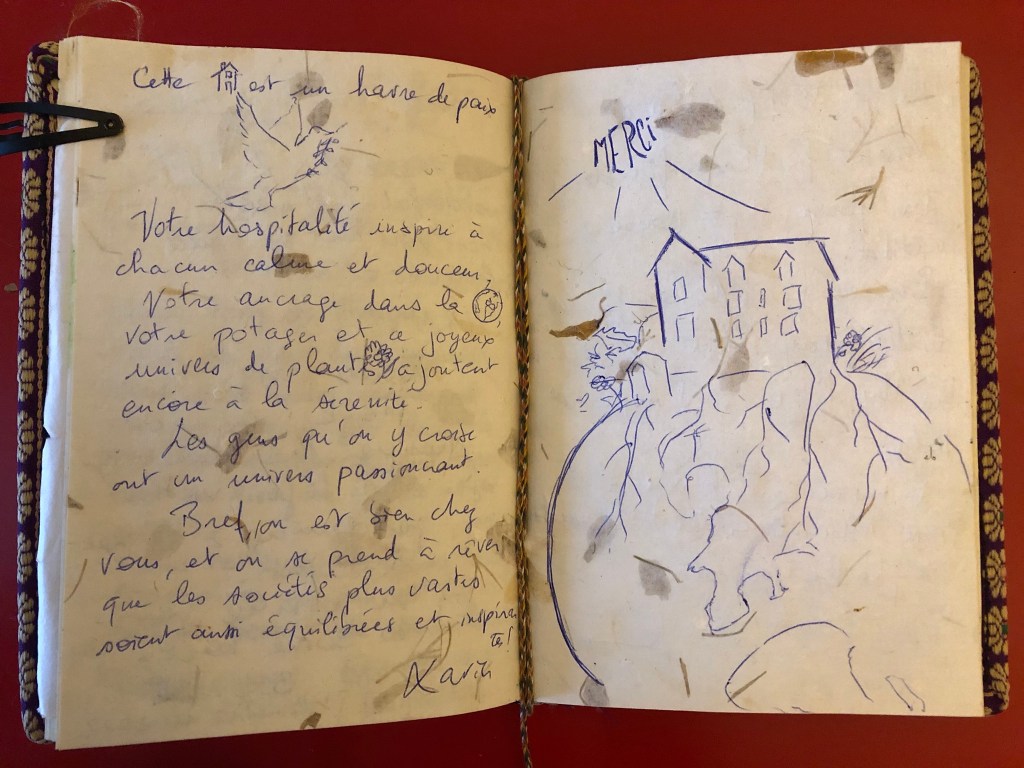 Cette est un havre de paix
Votre hospitalité inspire à
chacun calme et douceur.
Votre ancrage dans la
votre potager et ce joyeux
univers de plantes ajoutent
encore à la sérénité.
Les gens qu'on y croise
ont un univers passionnant.
Bref, on est bien chez
vous, et on se prend à rêver
que les sociétés plus vastes
soient aussi équilibrées et inspiran
tes!
MERCi